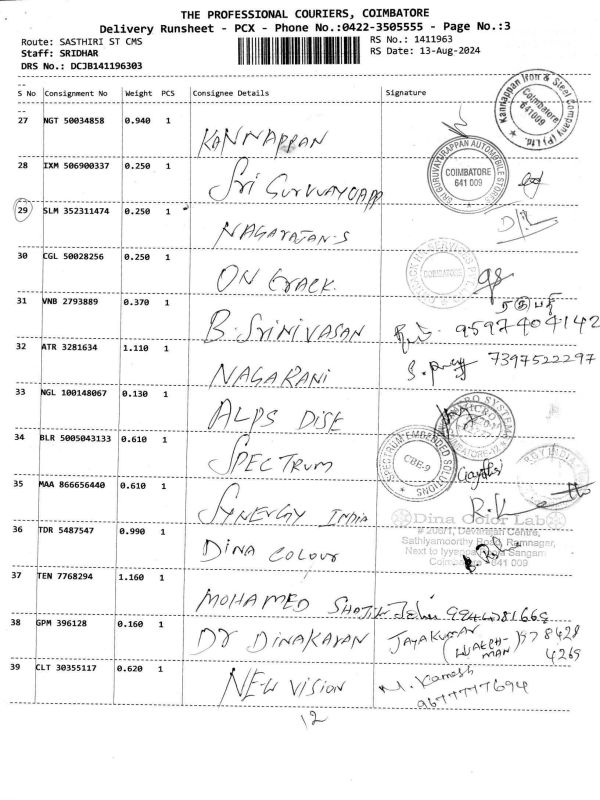 THE PROFESSIONAL COURIERS, COIMBATORE
Delivery Runsheet - PCX - Phone No.:0422-3505555 - Page No.:3
Route: SASTHIRI ST CMS
RS No.: 1411963
Staff: SRIDHAR
RS Date: 13-Aug-2024
DRS No.: DCJB141196303
S No Consignment No Weight PCS Consignee Details Signature
27 NGT 50034858 0.940 1 KANNAPPAN
Kannappan Iron & Steel Company (P) Ltd. Coimbatore 641009
28 IXM 506900337 0.250 1 Sri Guruvayoapp
SRI GURUVAYURAPPAN AUTOMOBILE STORES COIMBATORE 641 009
29 SLM 352311474 0.250 1 NAGARAJAN.S
30 CGL 50028256 0.250 1 ON CRACK
COIMBATORE
31 VNB 2793889 0.370 1 B. SRINIVASAN 9597404142
32 ATR 3281634 1.110 1 NAGARANI 7397522297
33 NGL 100148067 0.130 1 ALPS DISE
34 BLR 5005043133 0.610 1 SPECTRUM
SPECTRUM EMBEDDED SOLUTIONS CBE-9
35 MAA 866656440 0.610 1 SYNERGY INDIA
R.K
36 TDR 5487547 0.990 1 DINA COLOUR
Dina Color Lab
Devanesan Centre,
Sathiyamoorthy Road, Ramnagar,
Next to Sangam
Coimbatore 641 009
37 TEN 7768294 1.160 1 MOHAMED
38 GPM 396128 0.160 1 DR DINAKARAN JAYAKUMAR
4269
39 CLT 30355117 0.620 1 NEW VISION M. Ramesh
9677777694
12